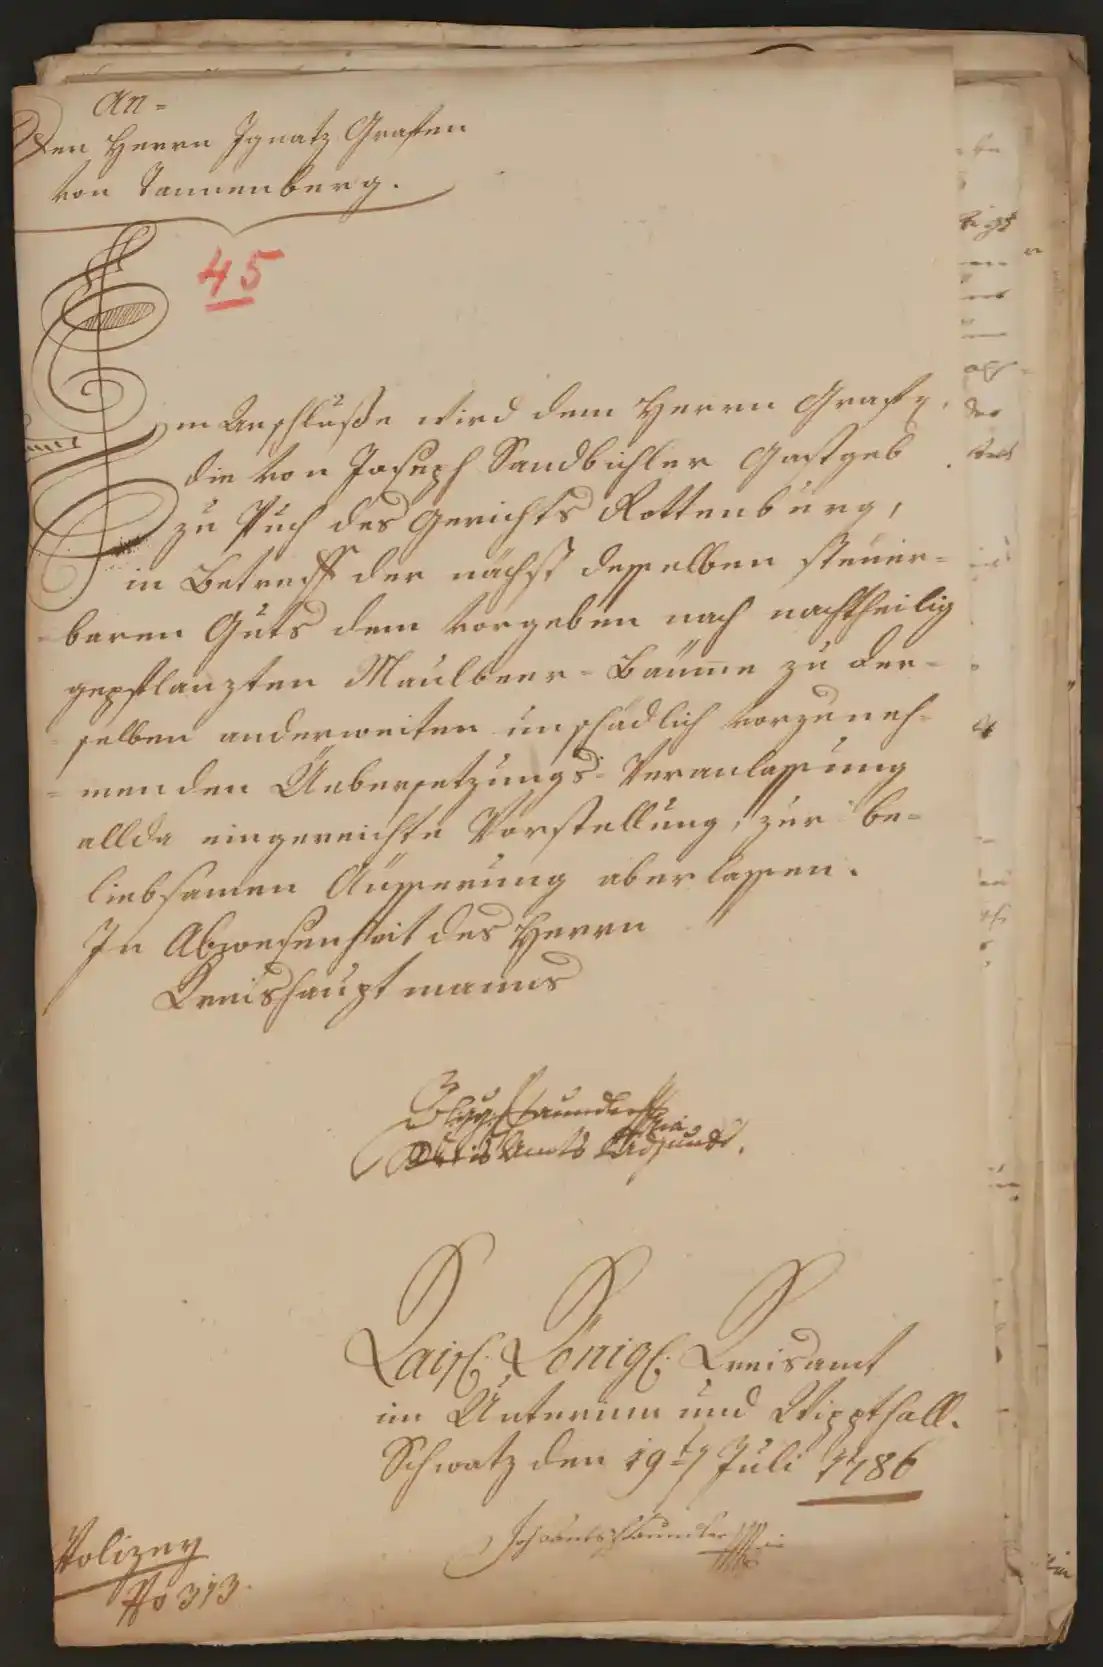 An-
Den Herrn Ignatz Grafen
von Tannenberg.
45
Im Anschluße wird dem Herrn Graf
die von Joseph Sandbichler Gastgeb
zu Puch des Gerichts Rottenburg,
in Betreff der nächst desselben steuer=
baren Guts dem vorgeben nach nachtheilig
gepflanzten Maulbeer=Bäume zu der=
selben anderweiten unschädlich vorzuneh=
menden Üebersetzungs-Veranlassung
allda eingereichte Vorstellung, zur be=
liebsamen Äusserung aberlassen.
In Abwesenheit des Herrn
Kreishauptmanns
Kreis Amts Adjunct.
Kaiserl. Königl. Kreisamt
im Unterinn und Wippthall.
Schwatz den 19t Juli 1786
Polizey
No 313.